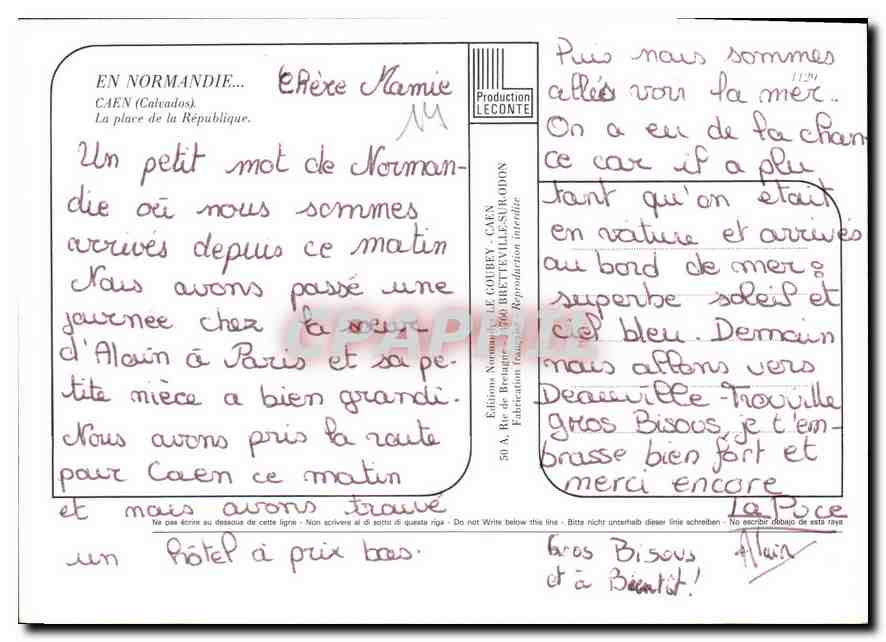 EN NORMANDIE...
CAEN (Calvados).
La place de la République.
Chère Mamie
Un petit mot de Norman-
die où nous sommes
arrivés depuis ce matin
Nous avons passé une
journée chez la sœur
d'Alain à Paris et sa pe-
tite nièce a bien grandi.
Nous avons pris la route
pour Caen ce matin
et nous avons trouvé
un hôtel à prix bas.
Production
LECONTE
Éditions Normandes LE GOUBEY - CAEN
50 A, Rte de Bretagne - 14760 BRETTEVILLE-SUR-ODON
Fabrication française Reproduction interdite
CPAPHIL
1129
Puis nous sommes
allés voir la mer..
On a eu de la chan-
ce car il a plu
tant qu'on était
en voiture et arrivés
au bord de mer :
superbe soleil et
ciel bleu. Demain
nous allons vers
Deauville-Trouville
gros Bisous, je t'em-
brasse bien fort et
merci encore
La Puce
Ne pas écrire au dessous de cette ligne - Non scrivere al di sotto di questa riga - Do not Write below this line - Bitte nicht unterhalb dieser linie schreiben - No escribir debajo de esta raya
Gros Bisous
et à Bientôt!
Alain